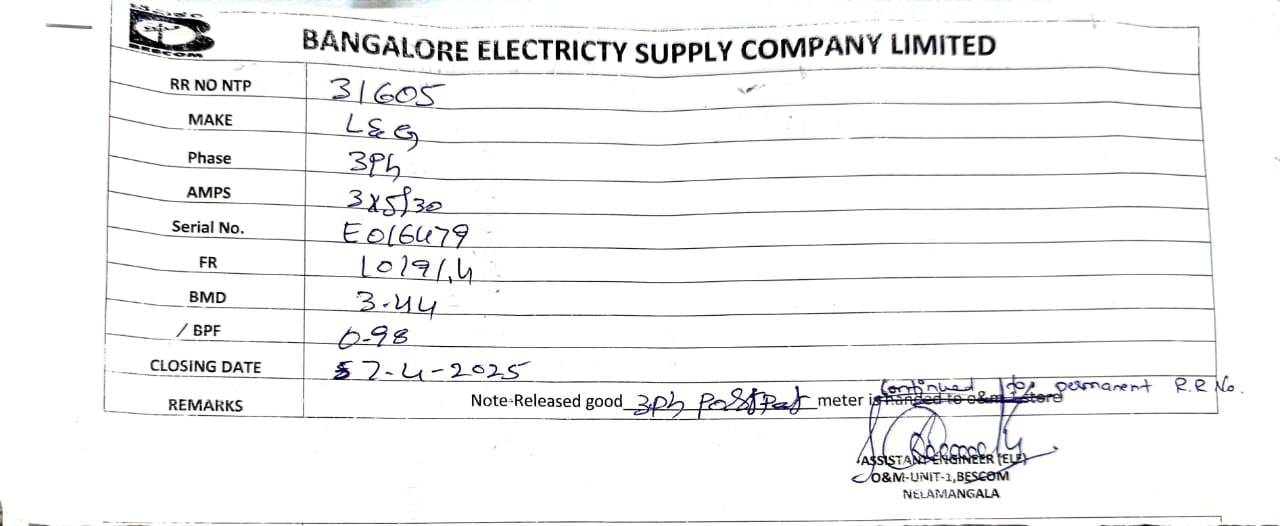 BESCOM
BANGALORE ELECTRICTY SUPPLY COMPANY LIMITED
RR NO NTP 31605
MAKE L&G
Phase 3Ph
AMPS 3x5/30
Serial No. E016479
FR
BMD 3.44
/ BPF 0-98
CLOSING DATE 7-4-2025
continued for permanent R.R No.
REMARKS Note-Released good 3Ph meter is handed to o&m-1 store
ASSISTANT ENGINEER (ELE)
O&M-UNIT-1,BESCOM
NELAMANGALA